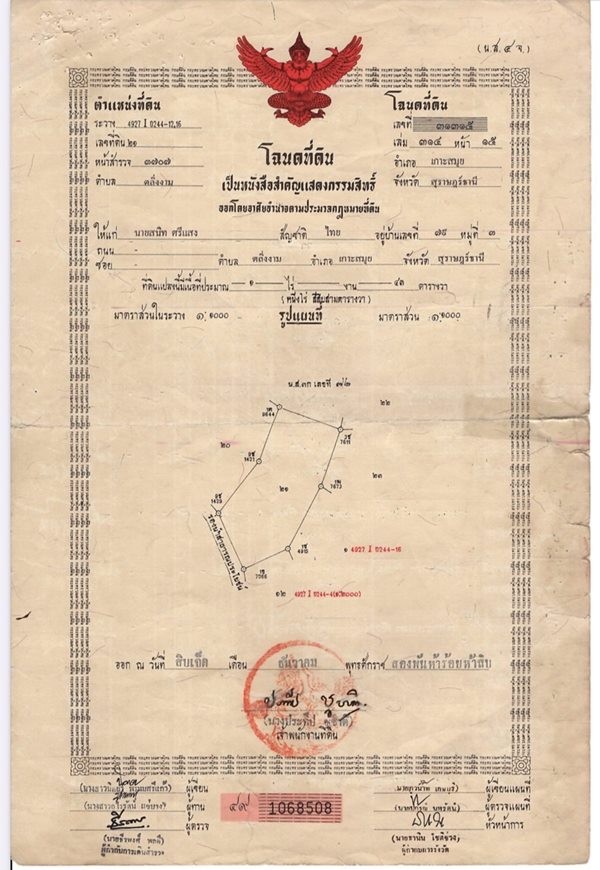 (น.ส.๔ จ.)
ตำแหน่งที่ดิน
ระวาง 4927 I 0244-12,16
เลขที่ดิน ๒๑
หน้าสำรวจ ๓๗๐๗
ตำบล ตลิ่งงาม
โฉนดที่ดิน
เลขที่ ๓๑๓๑๕
เล่ม ๓๑๔ หน้า ๑๕
อำเภอ เกาะสมุย
จังหวัด สุราษฎร์ธานี
โฉนดที่ดิน
เป็นหนังสือสำคัญแสดงกรรมสิทธิ์
ออกโดยอาศัยอำนาจตามประมวลกฎหมายที่ดิน
ให้แก่ นายสนิท ศรีแสง สัญชาติ ไทย อยู่บ้านเลขที่ ๗๙ หมู่ที่ ๓
ถนน -
ซอย - ตำบล ตลิ่งงาม อำเภอ เกาะสมุย จังหวัด สุราษฎร์ธานี
ที่ดินแปลงนี้มีเนื้อที่ประมาณ ๑ ไร่ - งาน ๔๓ ตารางวา
(หนึ่งไร่ สี่สิบสามตารางวา)
มาตราส่วนในระวาง ๑:๑๐๐๐ รูปแผนที่ มาตราส่วน ๑:๑๐๐๐
น.ส.๓ก เลขที่ ๗๒
๒๒
๒๐
๒๑
๒๓
ร่องน้ำสาธารณประโยชน์
๑ 4927 I 0244-16
๑๒
ออก ณ วันที่ สิบเจ็ด เดือน ธันวาคม พุทธศักราช สองพันห้าร้อยห้าสิบ
เจ้าพนักงานที่ดิน
ผู้เขียน
ผู้ทาน
ผู้ตรวจ
๔๙ 1068508
ผู้เขียนแผนที่
ผู้ตรวจแผนที่
หัวหน้าการ